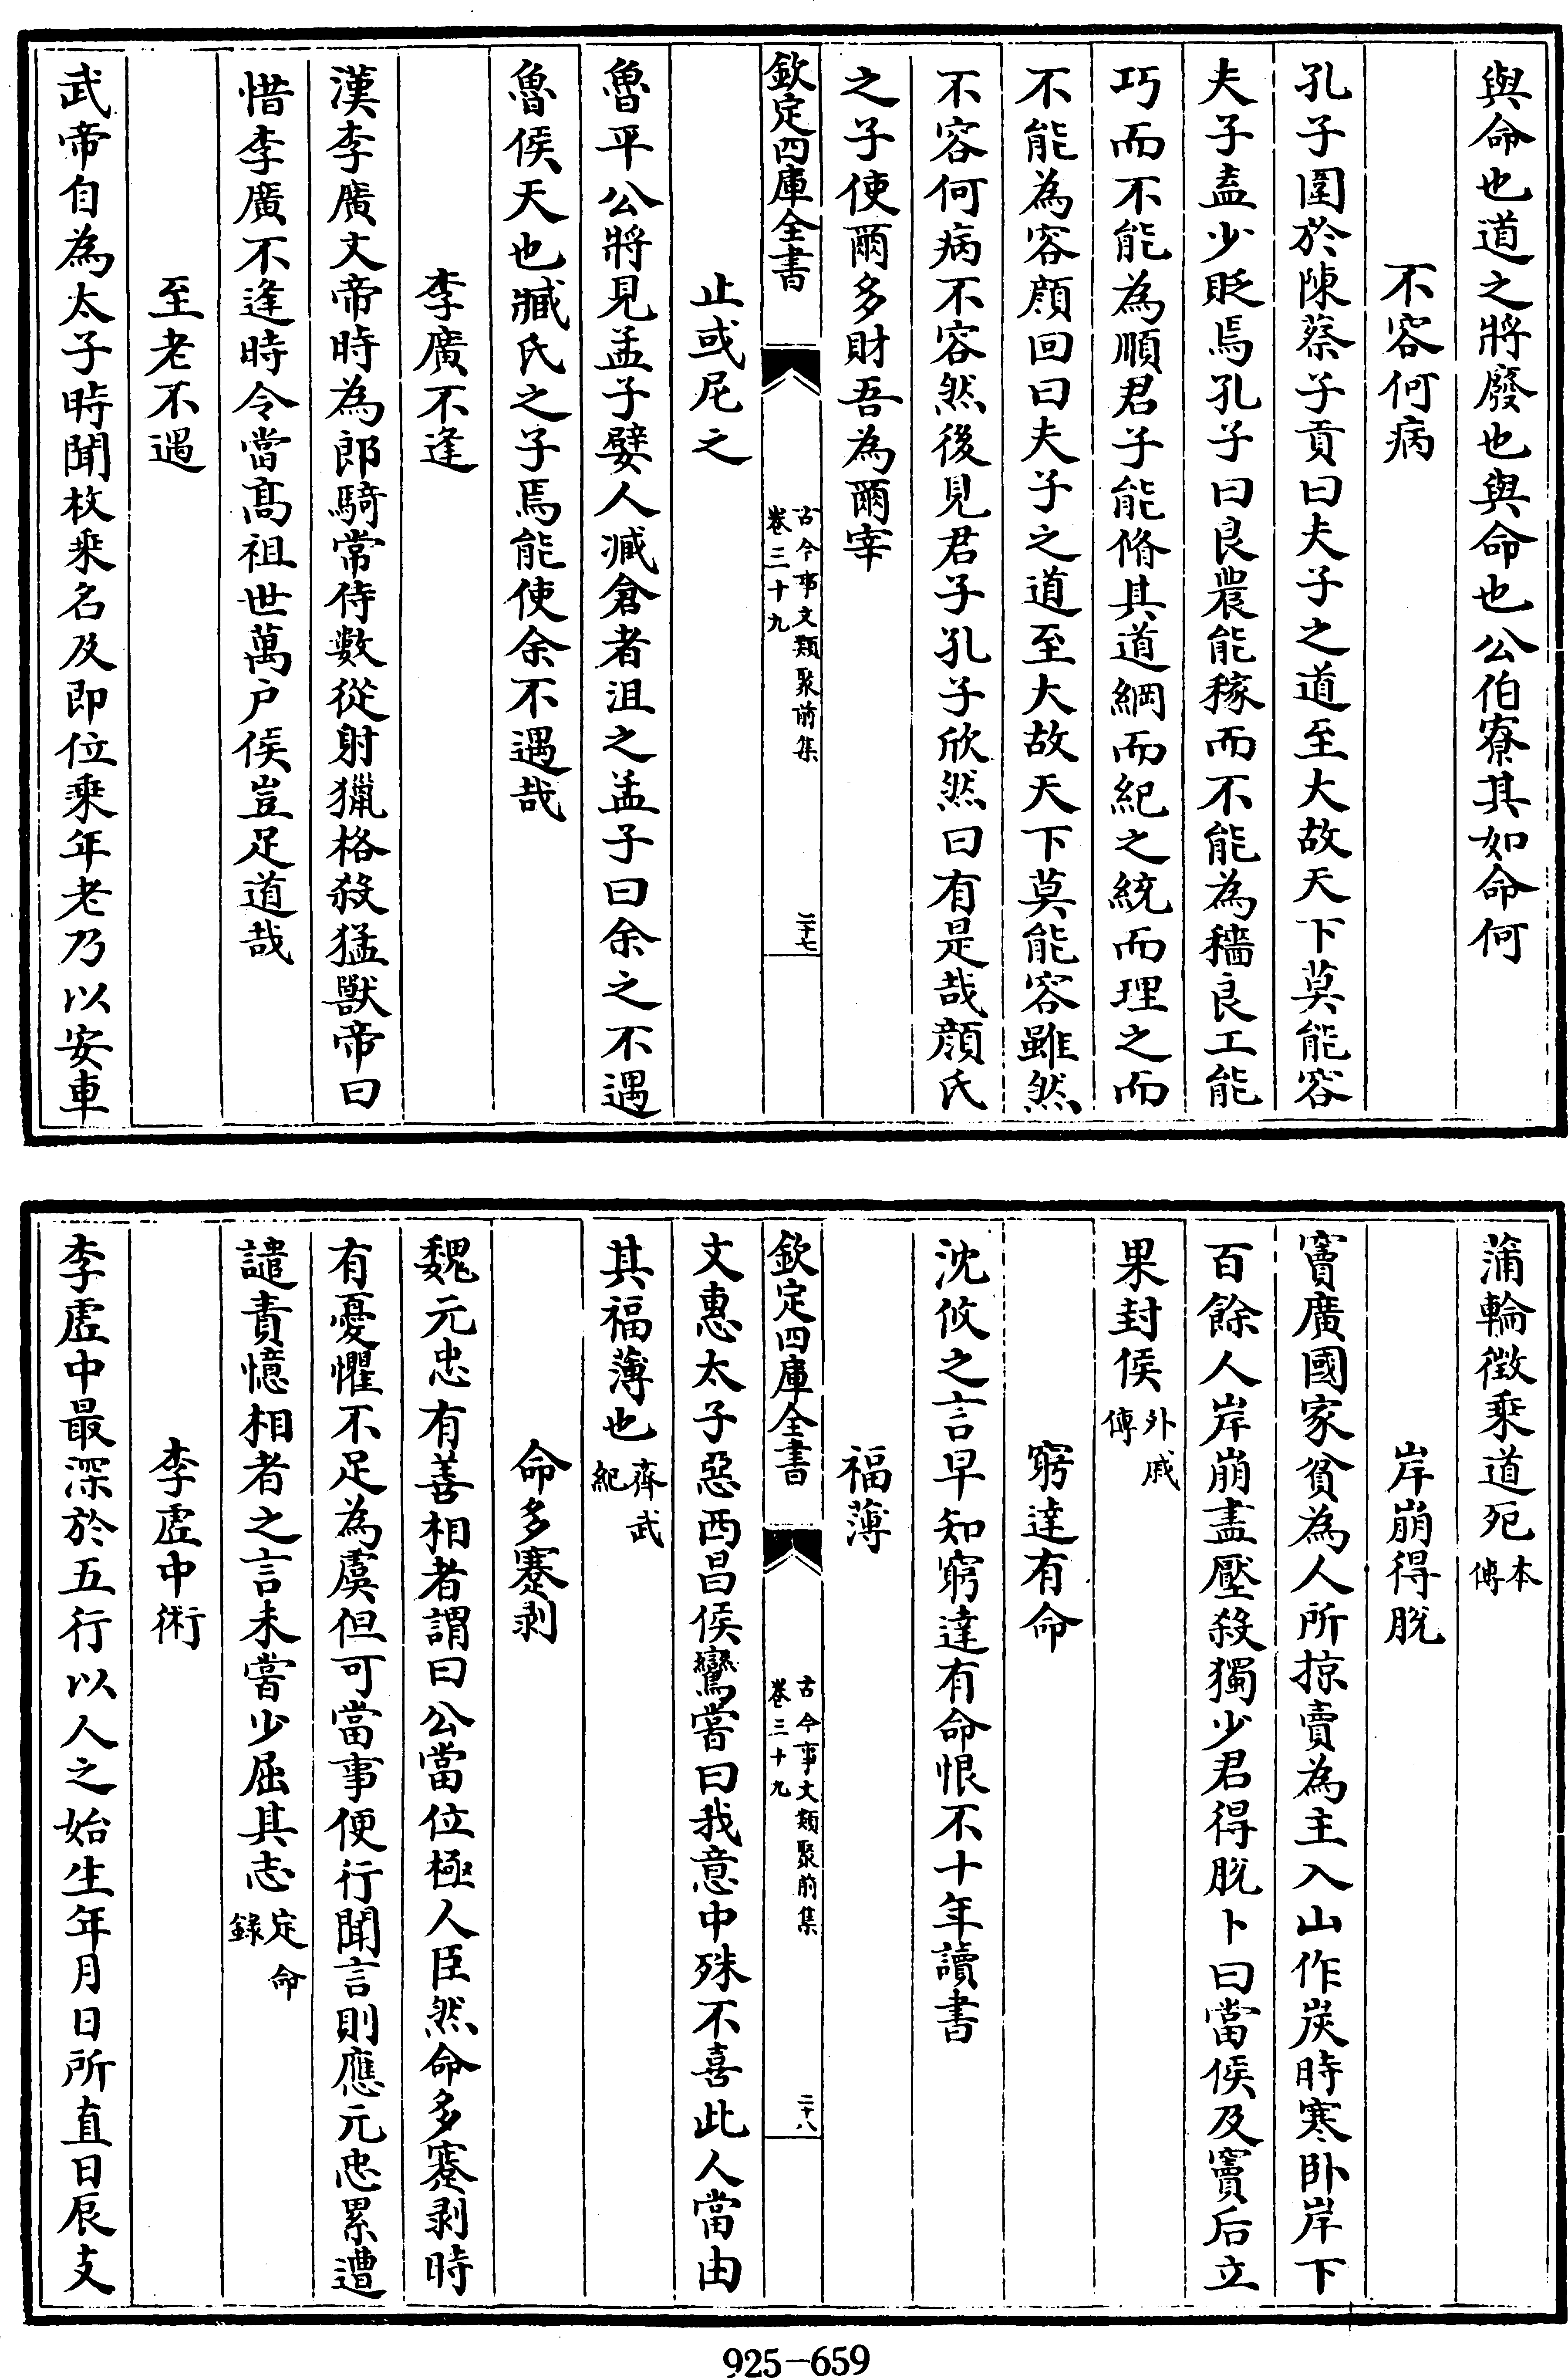 與命也道之將廢也與命也公伯寮其如命何
不容何病
孔子圍於陳蔡子貢曰夫子之道至大故天下莫能容
夫子盍少貶焉孔子曰良農能稼而不能為穡良工能
巧而不能為順君子能脩其道綱而紀之統而理之而
不能為容顔回曰夫子之道至大故天下莫能容雖然
不容何病不容然後見君子孔子欣然曰有是哉顔氏
之子使爾多財吾為爾宰
欽定四庫全書
古今事文類聚前集
卷三十九
二十七
止或尼之
魯平公將見孟子嬖人臧倉者沮之孟子曰余之不遇
魯侯天也臧氏之子焉能使余不遇哉
李廣不逢
漢李廣文帝時為郎騎常侍數從射獵格殺猛獸帝曰
惜李廣不逢時令當髙祖世萬户侯豈足道哉
至老不遇
武帝自為太子時聞枚乘名及即位乘年老乃以安車
蒲輪徴乘道死本傳
岸崩得脱
竇廣國家貧為人所掠賣為主入山作炭時寒卧岸下
百餘人岸崩盡壓殺獨少君得脱卜曰當侯及竇后立
果封侯外戚傳
窮達有命
沈攸之言早知窮達有命恨不十年讀書
福薄
欽定四庫全書
古今事文類聚前集
卷三十九
二十八
文惠太子惡西昌侯鸞嘗曰我意中殊不喜此人當由
其福薄也齊武紀
命多蹇剥
魏元忠有善相者謂曰公當位極人臣然命多蹇剥時
有憂懼不足為虞但可當事便行聞言則應元忠累遭
譴責憶相者之言未嘗少屈其志定命錄
李虚中術
李虚中最深於五行以人之始生年月日所直日辰支
925-659